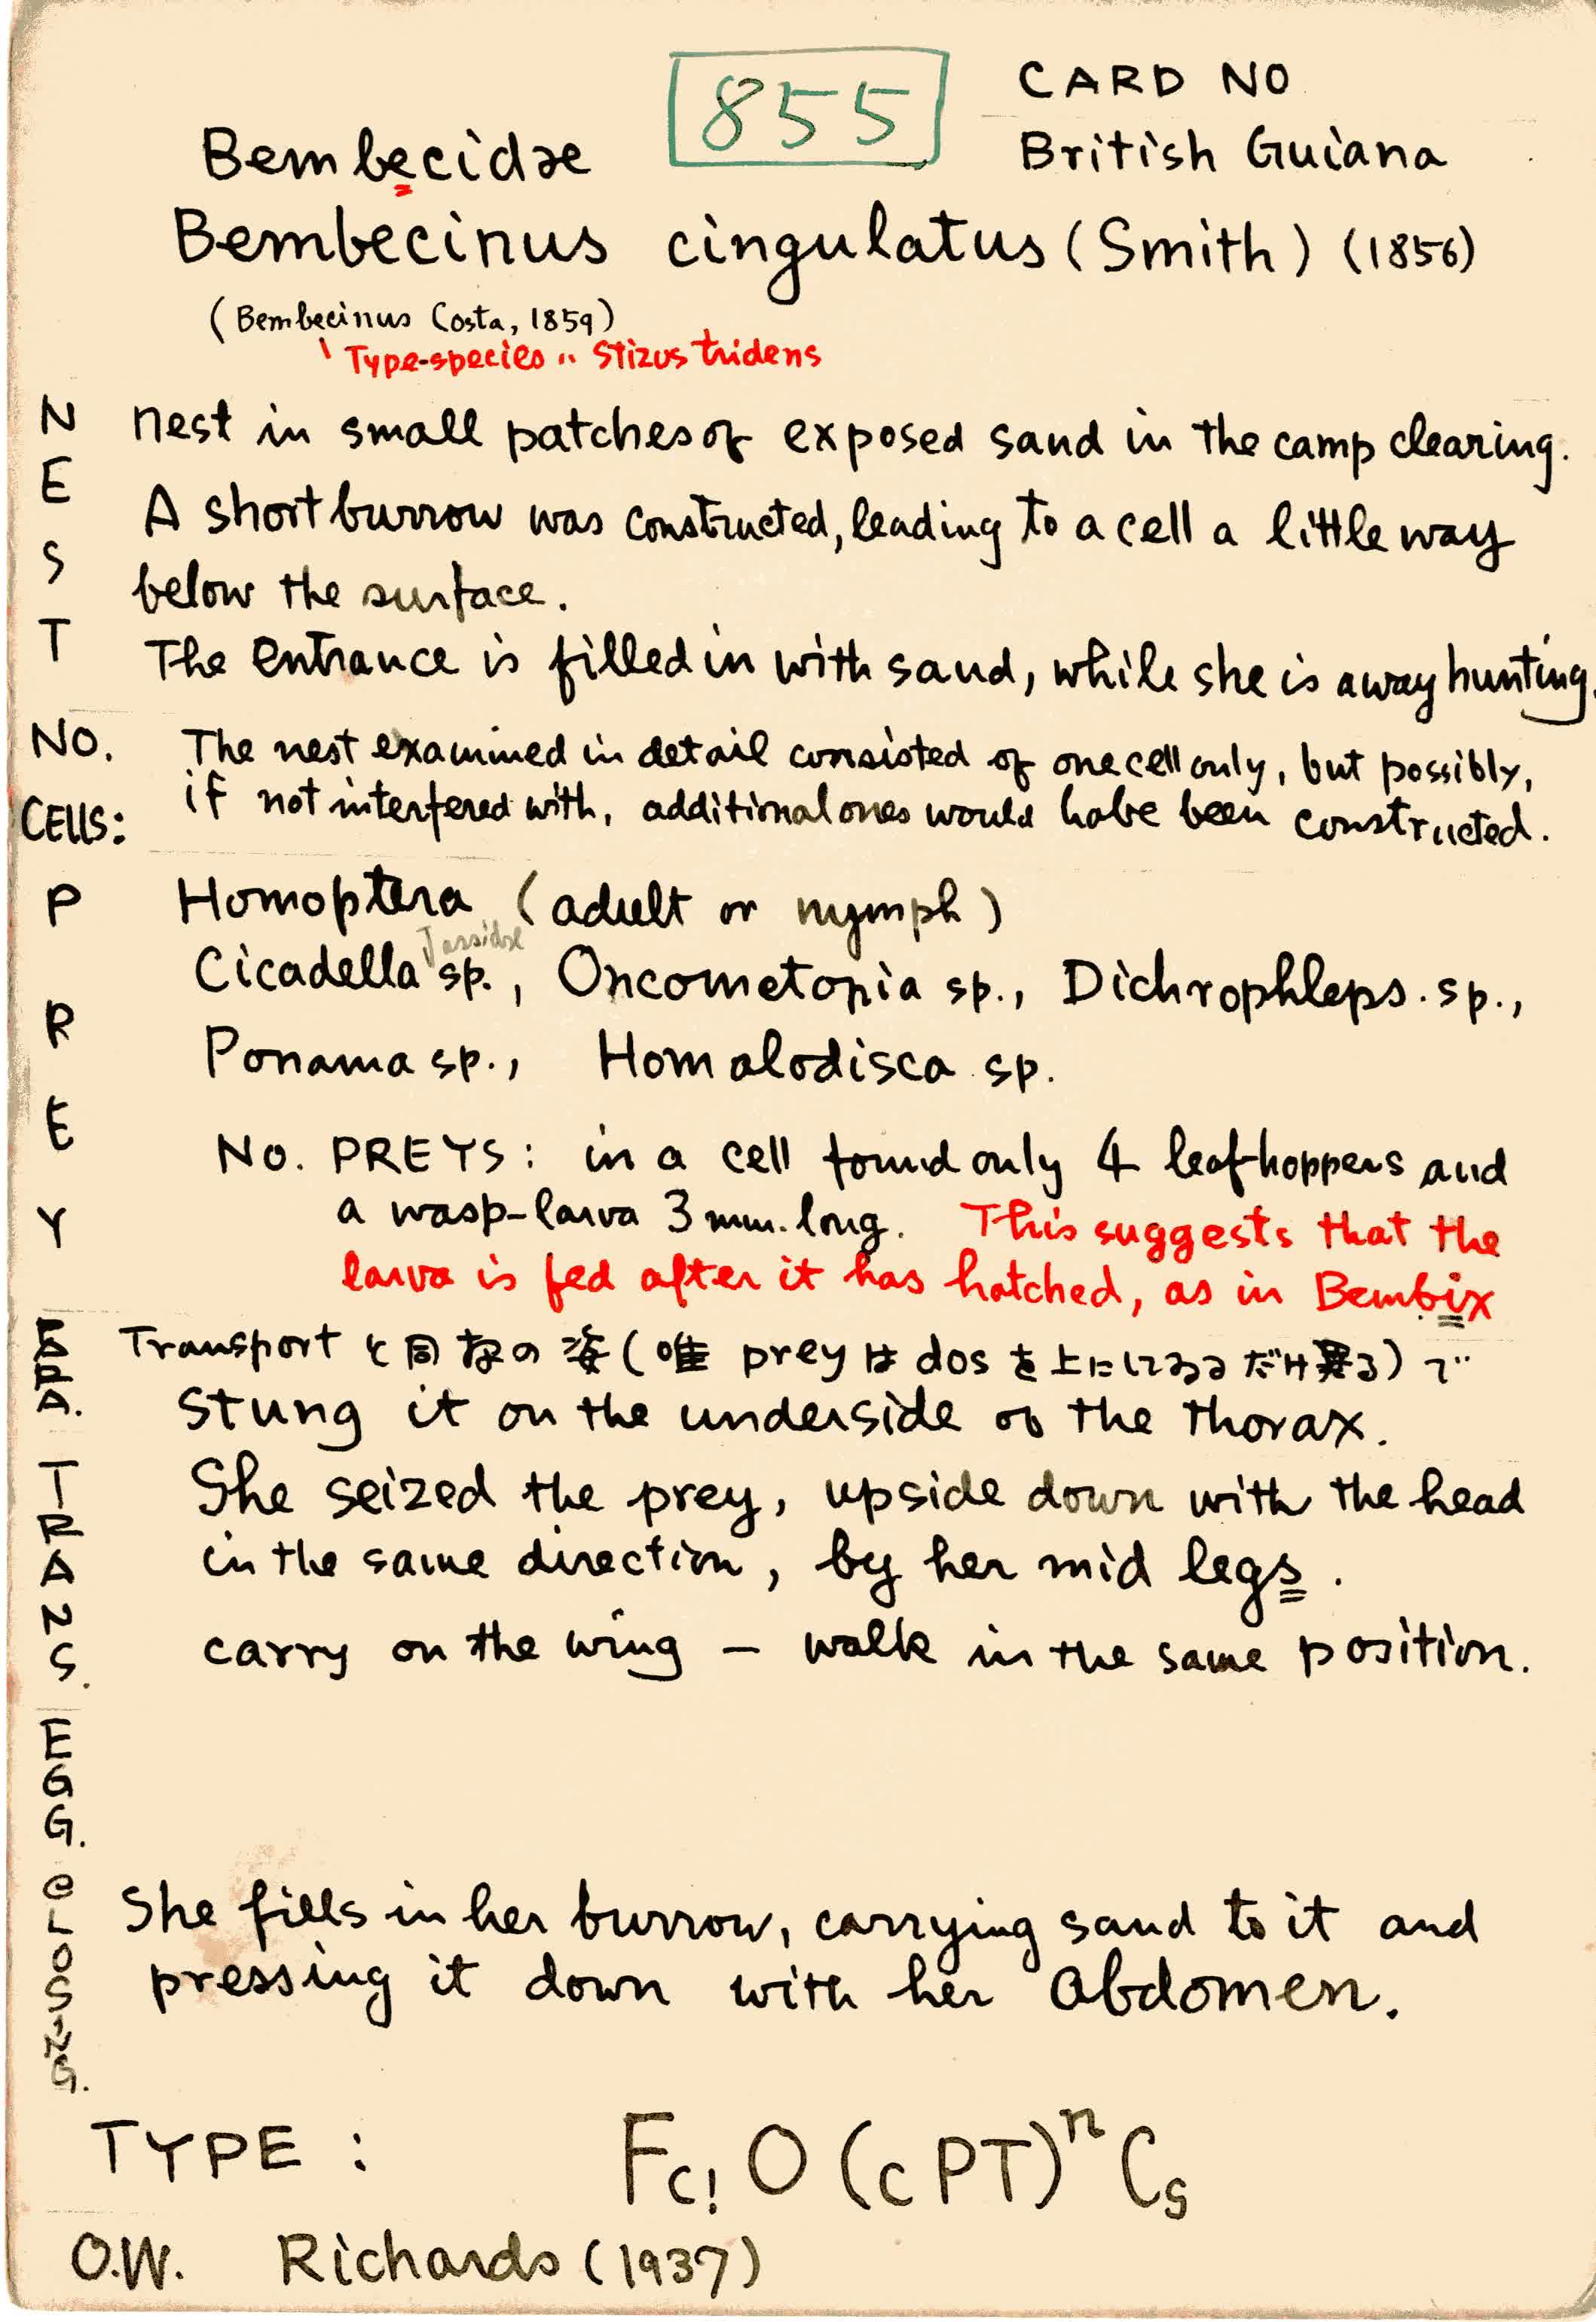 855
CARD NO
Bembecidae
British Guiana
Bembecinus cingulatus (Smith) (1856)
(Bembecinus Costa, 1859)
Type-species :: Stizus tridens
NEST
Nest in small patches of exposed sand in the camp clearing.
A short burrow was constructed, leading to a cell a little way
below the surface.
The entrance is filled in with sand, while she is away hunting.
NO. CELLS:
The nest examined in detail consisted of one cell only, but possibly,
if not interfered with, additional ones would habe been constructed.
PREY
Homoptera (adult or nymph)
Jassidae
Cicadella sp., Oncometopia sp., Dichrophleps. sp.,
Ponama sp., Homalodisca sp.
No. PREYS: in a cell found only 4 leaf-hoppers and
a wasp-larva 3 mm. long. This suggests that the
larva is fed after it has hatched, as in Bembix
PRA. TRANS.
Transport と同様の姿(唯 prey は dos を上にしてゐるだけ異る)で
Stung it on the underside of the thorax.
She seized the prey, upside down with the head
in the same direction, by her mid legs.
carry on the wing – walk in the same position.
EGG.
CLOSING.
She fills in her burrow, carrying sand to it and
pressing it down with her abdomen.
TYPE : Fc! O (c PT)ⁿ Cs
O.W. Richards (1937)